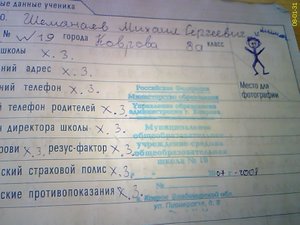 ные данные ученика
О. Шеманаев Михаил Сергеевич
№ №19 города Коврова 8а класс
школы Х.З.
ний адрес Х.З.
ний телефон Х.З.
й телефон родителей Х.З.
н директора школы Х.З.
рови Х.З. резус-фактор Х.З.
ский страховой полис Х.З.
ские противопоказания Х.З.
Место для
фотографии
Российская Федерация
Министерство образования
Управление образования
администрации г. Коврова
Муниципальное
общеобразовательное
учреждение средняя
общеобразовательная
школа № 19
г. Ковров Владимирской обл.